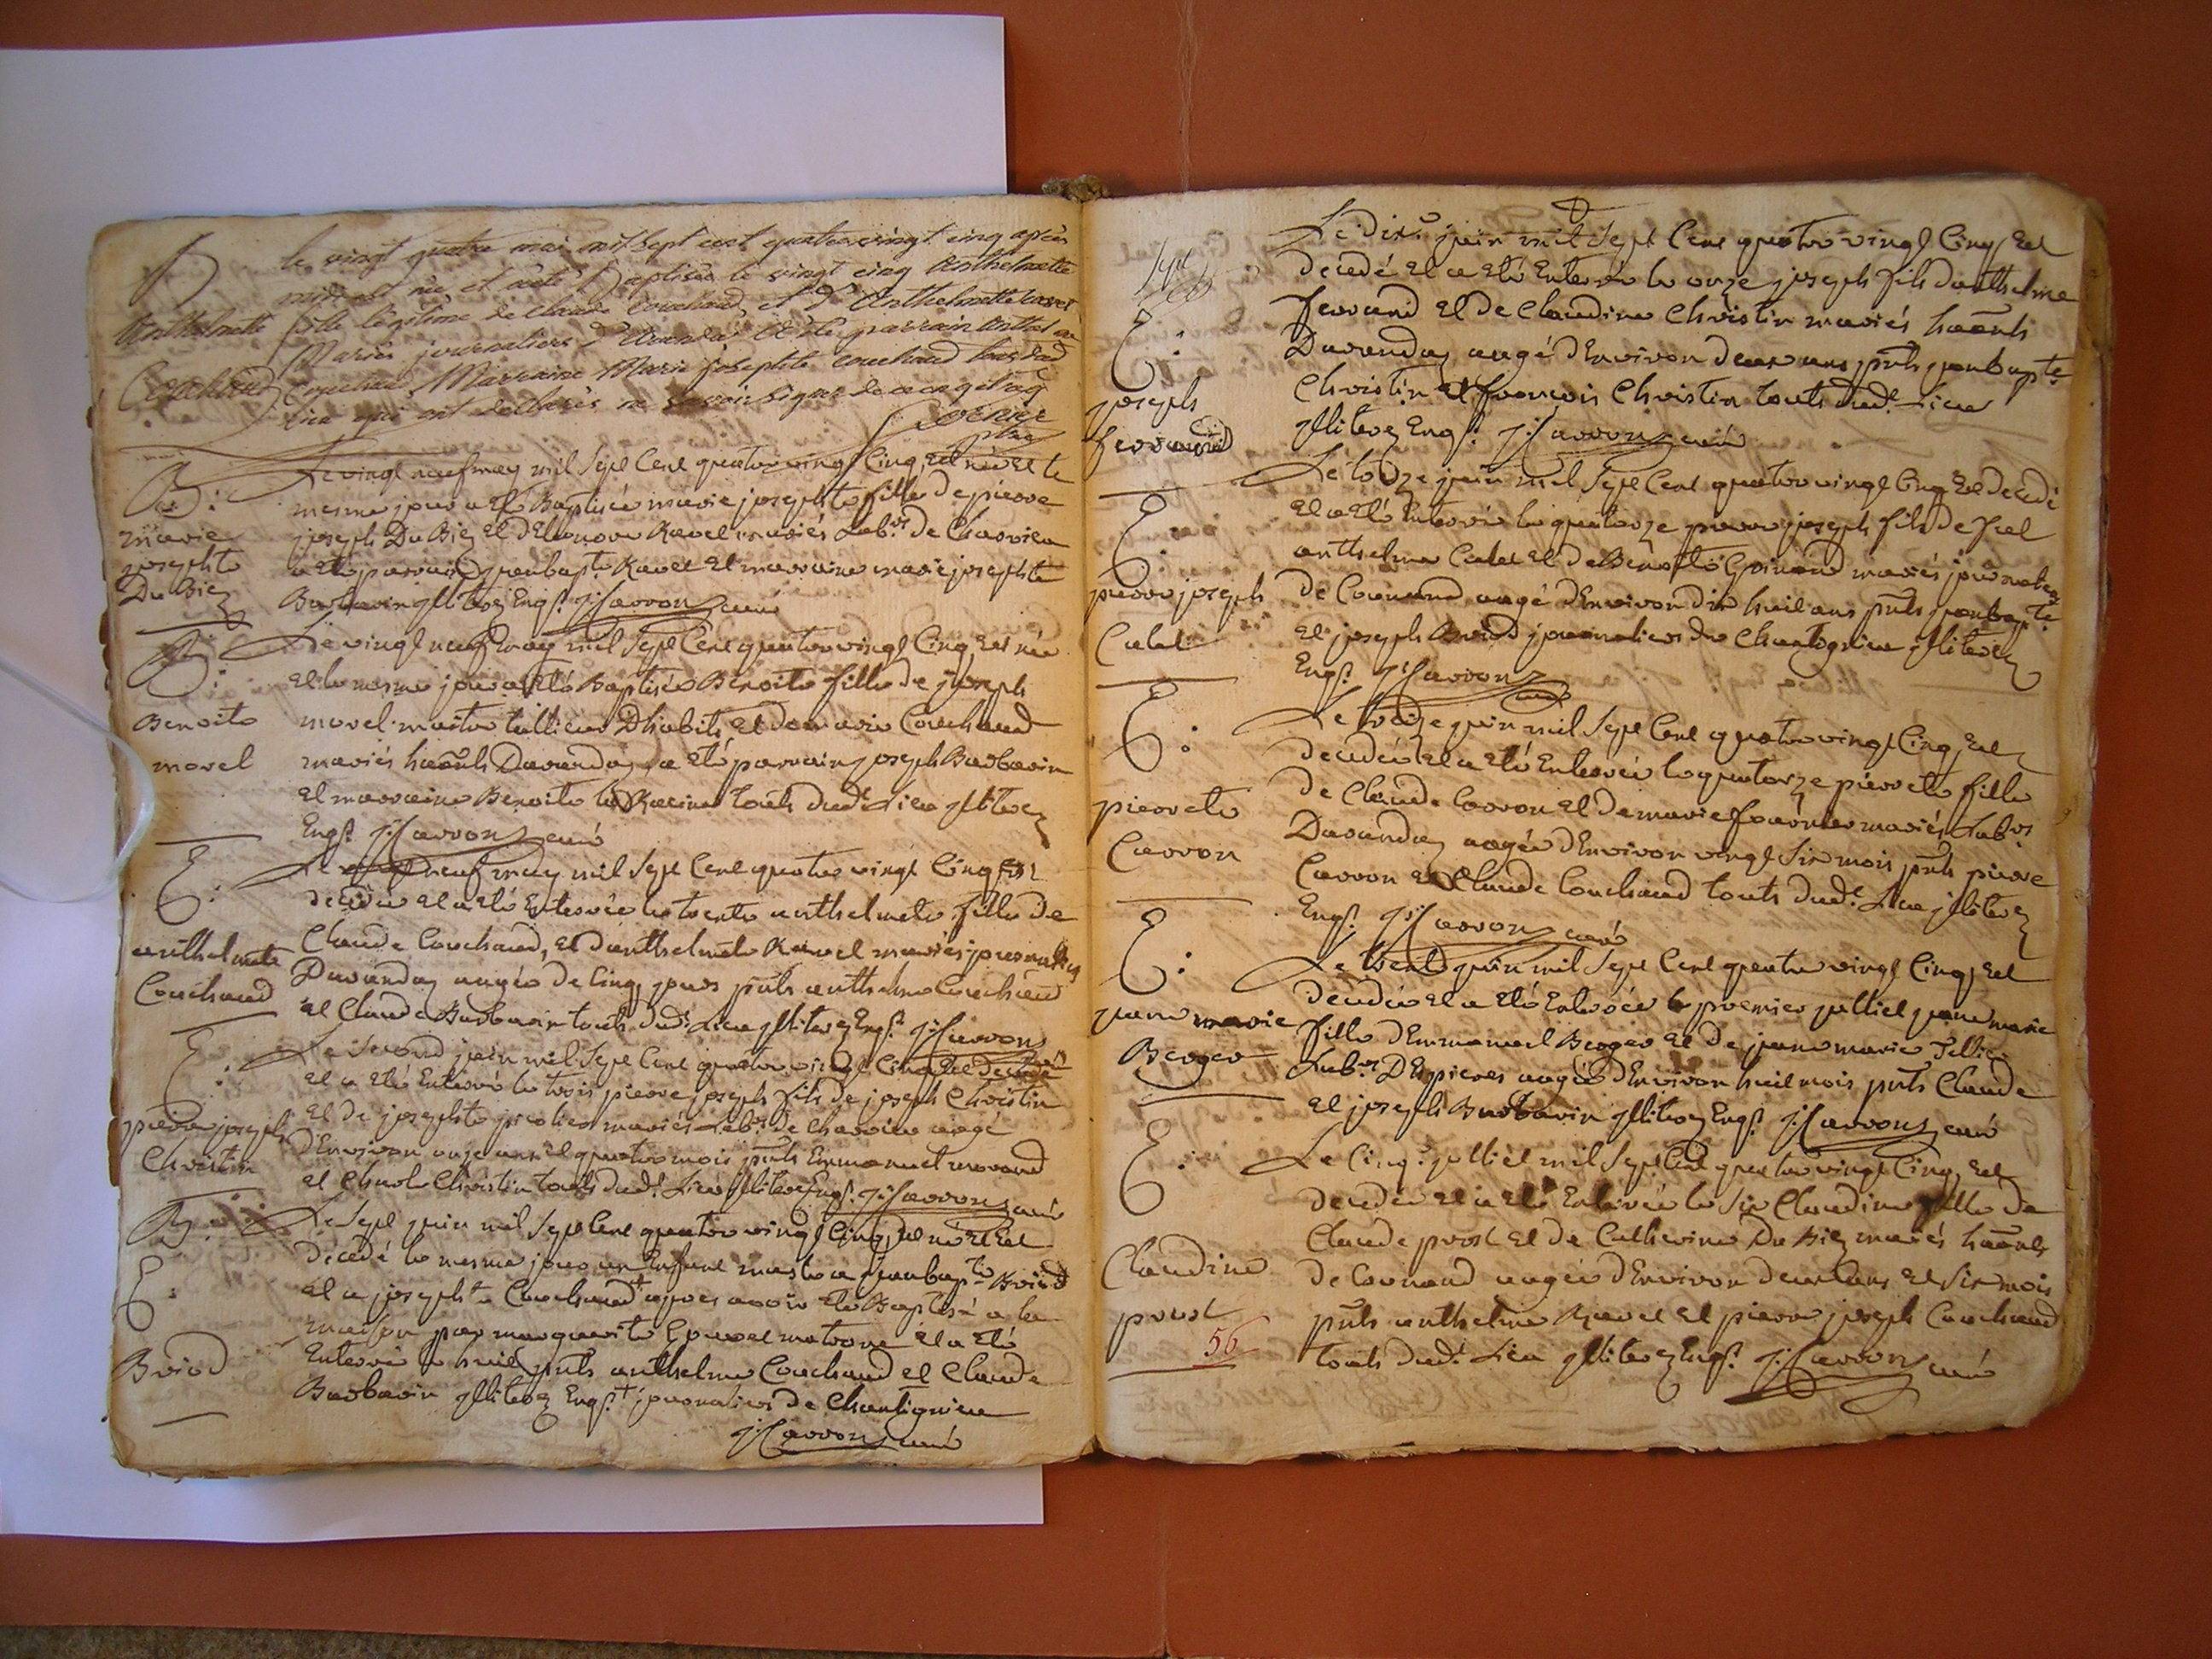 B
Anthelmette
Couchoud
le vingt quatre mai mil sept cent quatre vingt cinq après
midi est née et a été Baptisée le vingt cinq Anthelmette
fille légitime de claude couchoud et d'Anthelmette
Mariés journaliers d'Avanda a été parrain
couchoud Marraine Marie josephte couchoud tous dud
lieu qui ont declarés ne savoir signer de ce enquis
B:
marie
josephte
Du Biez
Le vingt neuf may mil Sept Cent quatre vingt Cinq, est née et le
mesme jour a Eté Baptisée marie josephte fille de pierre
joseph Du Biez et d'Eleonore Ravet mariés Lab.rs de Charvieu
a Eté parrain jeanbapt.te Ravet et marraine marie josephte
Barbarin jllitérez Engst j: Carron curé
B:
Benoite
morel
Le vingt neuf may mil Sept Cent quatre vingt Cinq, est née
et le mesme jour a Eté Baptisée Benoite fille de joseph
morel maitre tallieur D'habits et de marie Couchoud
mariés haants Davanday a Eté parrain joseph Barbarin
et marraine Benoite Racine touts dud.t Lieu jllitérez
Engst j: Carron curé
E:
anthelmete
Couchoud
Le neuf may mil Sept Cent quatre vingt Cinq Est
decedée et a Eté Enterrée le trente anthelmete fille de
Claude Couchoud, et d'anthelmete Ravet mariés journaliers
Davanday aagée de Cinq jours pnts anthelme Couchoud
et Claude Barbarin touts dud.t Lieu jllitérez Engst j: Carron
E:
pierre joseph
Christin
Le Second juin mil Sept Cent quatre vingt Cinq Est decedé
et a Eté Enterré le trois pierre joseph fils de joseph Christin
et de josephte mariés Lab.rs de Charvieu aagé
D'Environ onze ans et quatre mois pnts Emmanuel
et Christin touts dud.t Lieu jllitérez Engst j: Carron curé
B:
E:
Briod
Le Sept juin mil Sept Cent quatre vingt Cinq, Est né et Est
decedé le mesme jour un Enfant masle a jeanbap.te Briod
et a josephte Couchoud + apres avoir Eté Baptisé a la
maison par marguerite matrone et a Eté
Enterré le huit pnts anthelme Couchoud et Claude
Barbarin jllitérez Engst + journaliers de Chantignieu
j: Carron curé
E:
joseph
ferrand
Le dix juin mil Sept Cent quatre vingt Cinq, Est
decedé et a Eté Enterré le onze joseph fils danthelme
ferrand et de Claudine Christin mariés haants
Davanday aagé d'Environ deux ans pnts jeanbapte
Christin et françois Christin touts dud.t Lieu
jllitérez Engst j: Carron curé
E:
pierre joseph
Calet
Le juin mil Sept Cent quatre vingt Cinq Est decedé
et a Eté Enterré le quatorze pierre joseph fils de feu
anthelme Calet et de Benoite mariés journaliers
de Cornand aagé d'Environ dix huit ans pnts jeanbapte
et joseph Briod journaliers de Chantignieu jllitérez
Engst j: Carron curé
E:
pierrete
Carron
Le treize juin mil Sept Cent quatre vingt Cinq, Est
decedée et a Eté Enterrée le quatorze pierrete fille
de Claude Carron et de marie mariés Lab.rs
Davanday aagée d'Environ vingt Six mois pnts pierre
Carron et Claude Couchoud touts dud.t Lieu jllitérez
Engst j: Carron curé
E:
jeane marie
Berger
Le trente juin mil Sept Cent quatre vingt Cinq, Est
decedée et a Eté Enterrée le premier julliet jeane marie
fille d'Emmanuel Berger et de jeane marie
Lab.rs D'Epierres aagée d'Environ huit mois pnts Claude
et joseph Barbarin jllitérez Engst j: Carron curé
E:
Claudine
prost
Le Cinq julliet mil Sept Cent quatre vingt Cinq, Est
decedée et a Eté Enterrée le Six Claudine fille de
Claude prost et de Catherine Du Biez mariés haants
de Cornand aagée d'Environ deux ans et Six mois
pnts anthelme Ravet et pierre joseph Couchoud
touts dud.t Lieu jllitérez Engst j: Carron curé
56